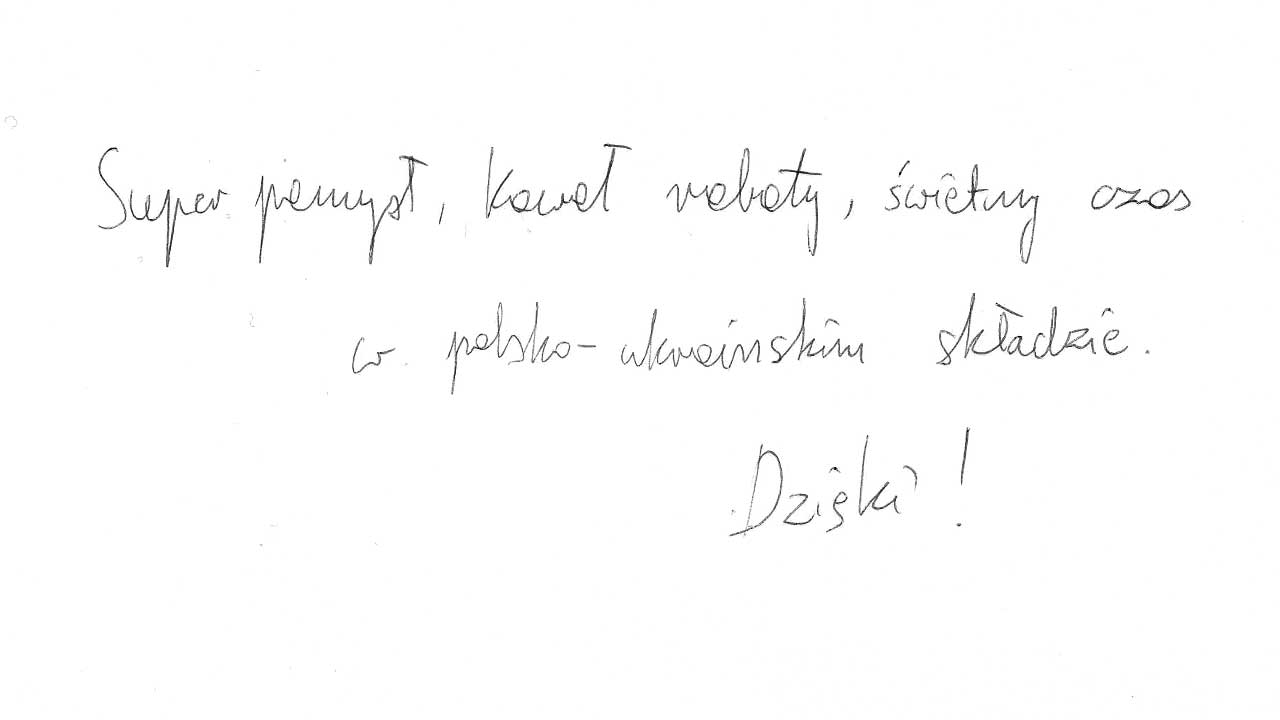 Super pomysł, kawał roboty, świetny czas
w polsko-ukraińskim składzie.
Dzięki!